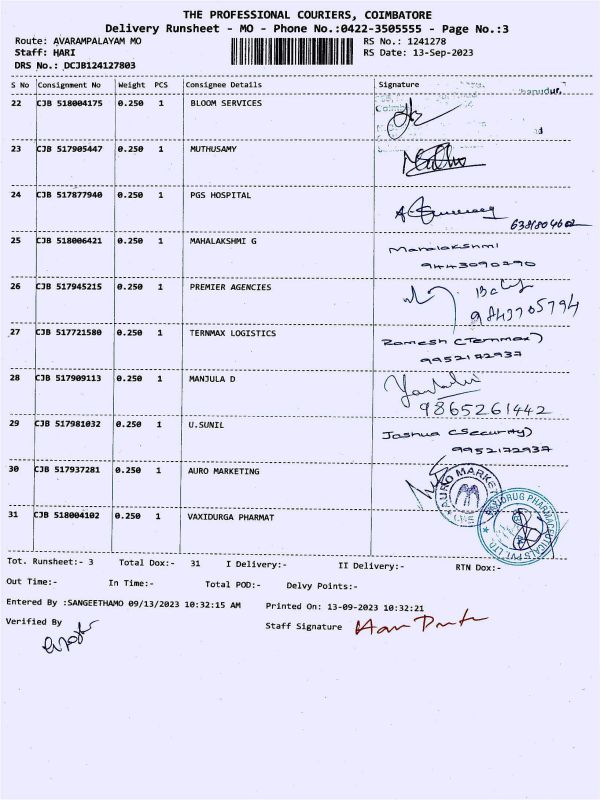 THE PROFESSIONAL COURIERS, COIMBATORE
Delivery Runsheet - MO - Phone No.:0422-3505555 - Page No.:3
Route: AVARAMPALAYAM MO RS No.: 1241278
Staff: HARI RS Date: 13-Sep-2023
DRS No.: DCJB124127803
S No Consignment No Weight PCS Consignee Details Signature
22 CJB 518004175 0.250 1 BLOOM SERVICES
23 CJB 517905447 0.250 1 MUTHUSAMY
24 CJB 517877940 0.250 1 PGS HOSPITAL
25 CJB 518006421 0.250 1 MAHALAKSHMI G Mahalakshmi
9443090290
26 CJB 517945215 0.250 1 PREMIER AGENCIES
9843705794
27 CJB 517721580 0.250 1 TERNMAX LOGISTICS Ramesh (Ternmax)
9952172937
28 CJB 517909113 0.250 1 MANJULA D
9865261442
29 CJB 517981032 0.250 1 U.SUNIL Joshua (Security)
9952172937
30 CJB 517937281 0.250 1 AURO MARKETING AURO MARKE
31 CJB 518004102 0.250 1 VAXIDURGA PHARMAT DRUG PHARMACEUTICALS PVT LTD.
Tot. Runsheet:- 3 Total Dox:- 31 I Delivery:- II Delivery:- RTN Dox:-
Out Time:- In Time:- Total POD:- Delvy Points:-
Entered By :SANGEETHAMO 09/13/2023 10:32:15 AM Printed On: 13-09-2023 10:32:21
Verified By Staff Signature